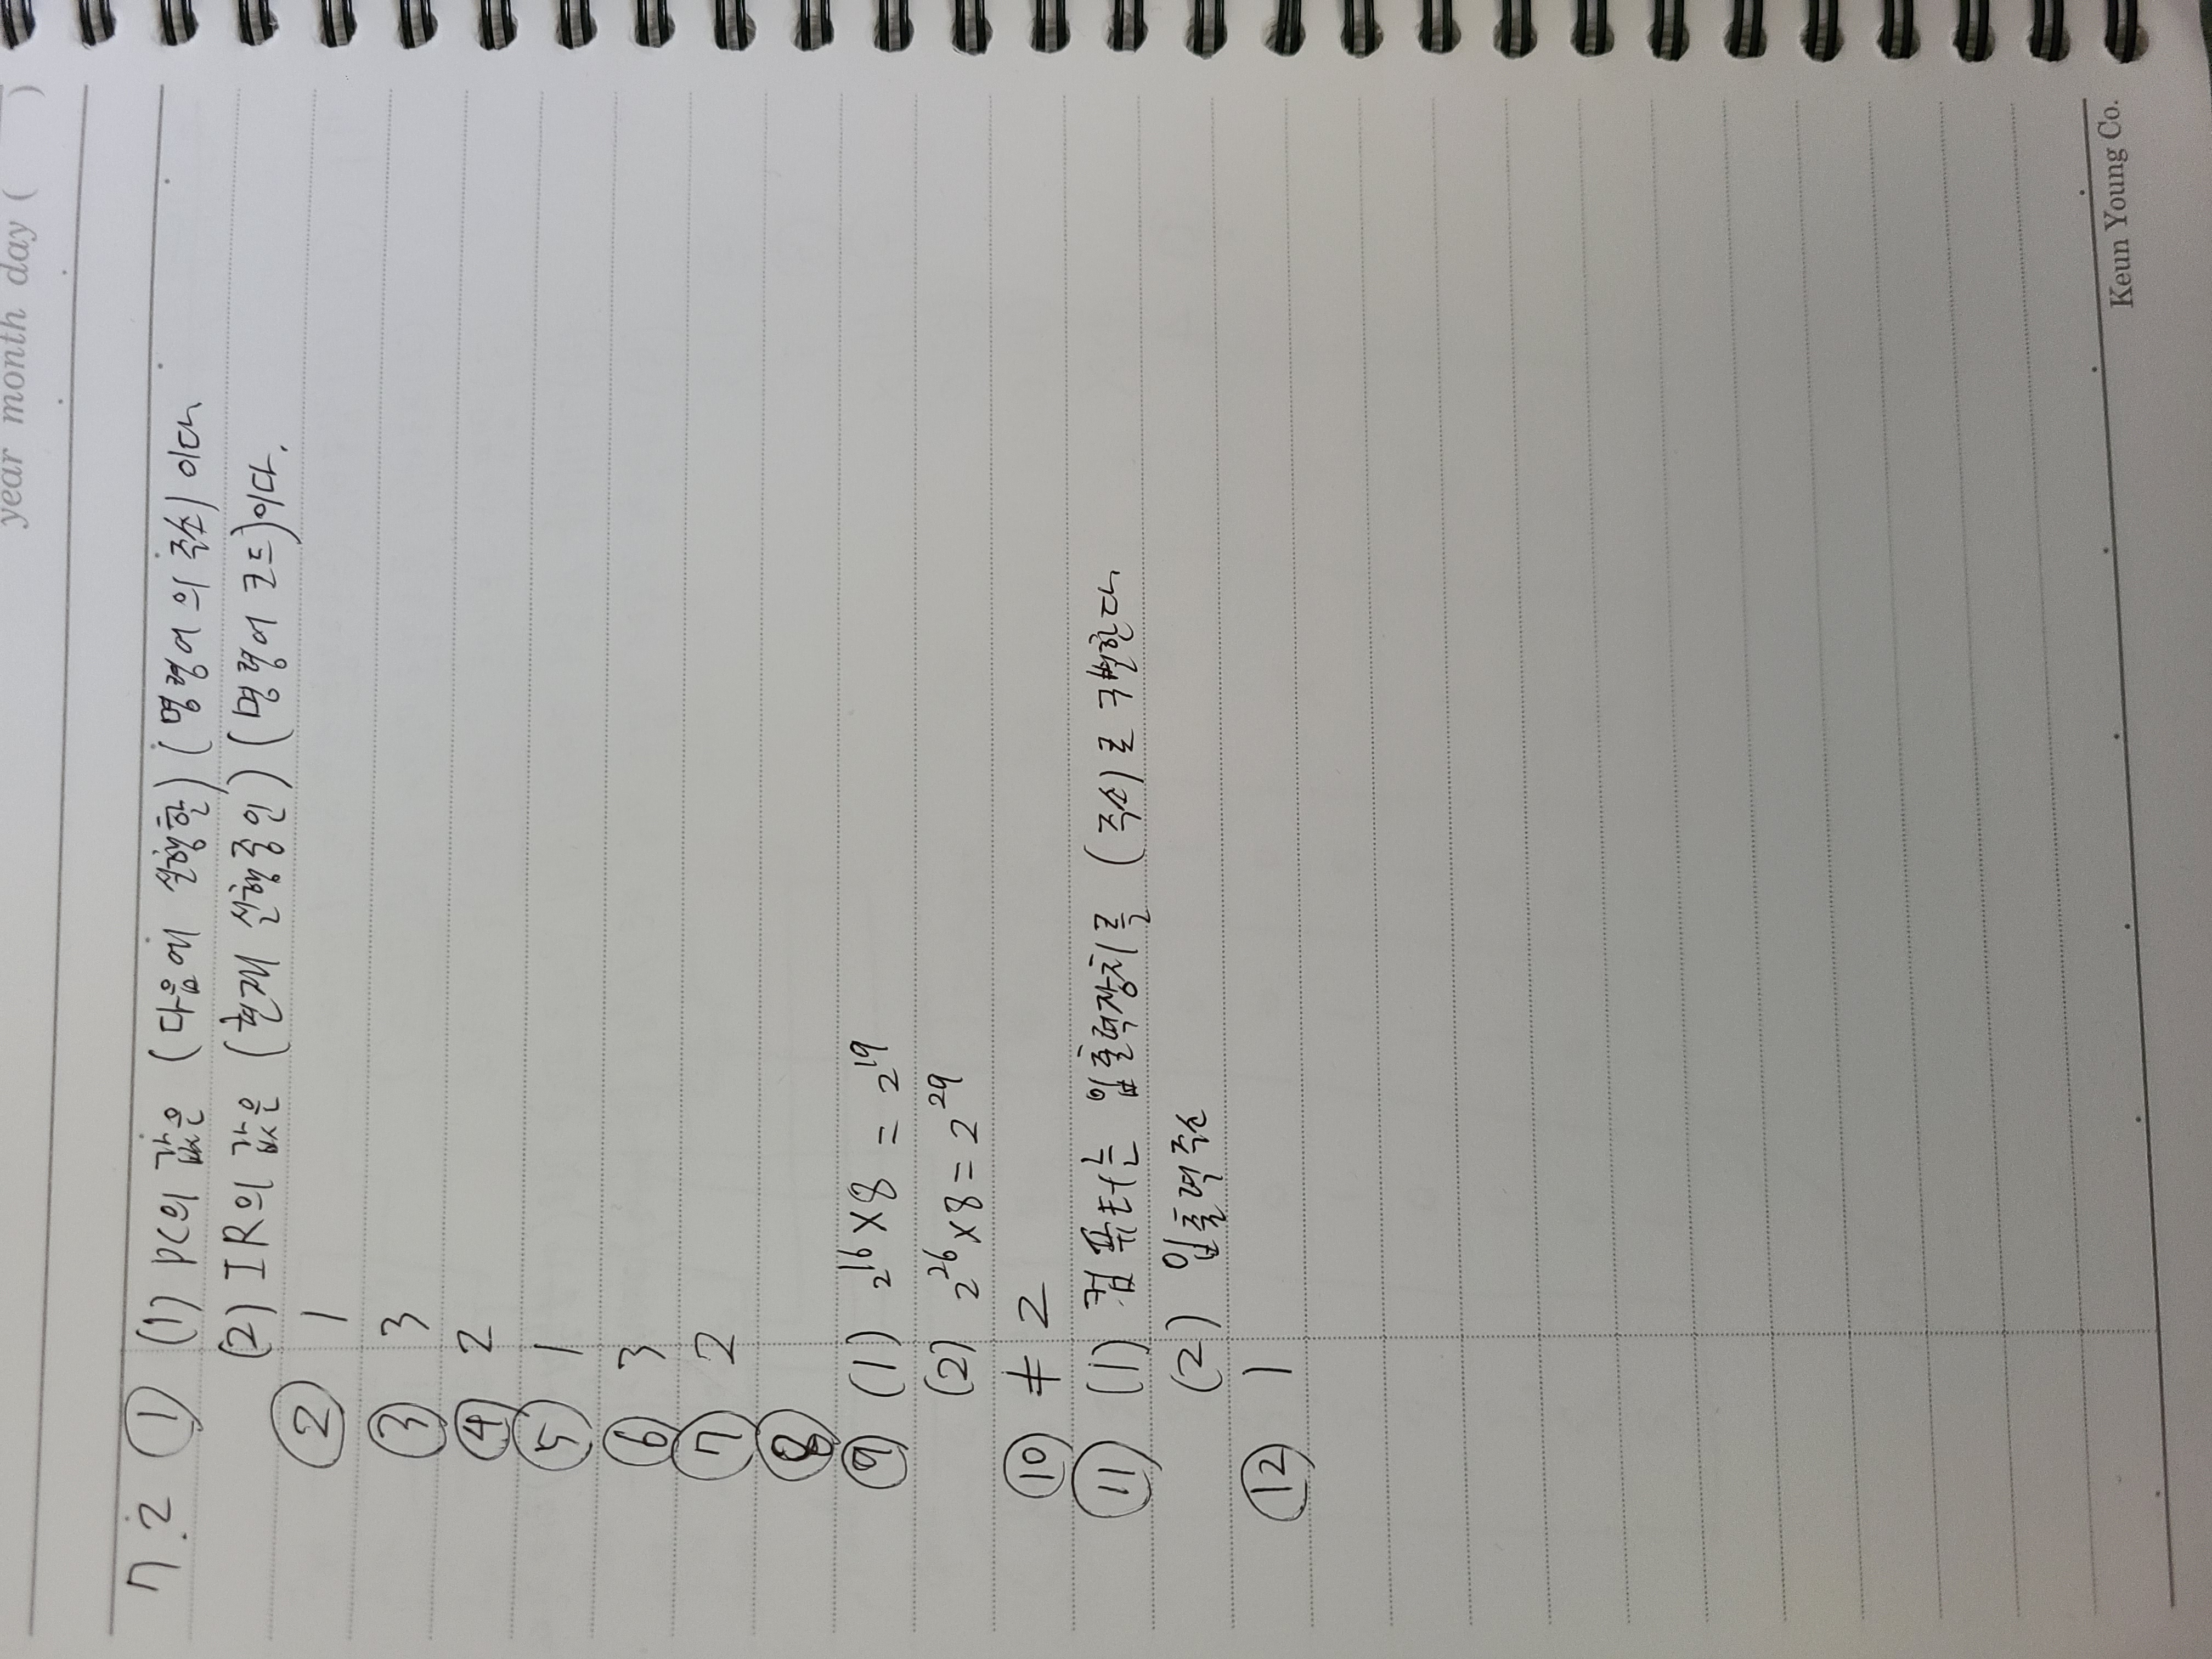 year month day ( )
7.2 ① (1) PC의 값은 (다음에 실행할) (명령어의 주소) 이다
(2) IR의 값은 (현재 실행중인) (명령어 코드)이다.
② 1
③ 3
④ 2
⑤ 1
⑥ 3
⑦ 2
⑧
⑨ (1) 2¹⁶×8 = 2¹⁹
(2) 2²⁶×8 = 2²⁹
⑩ ≠ 2
⑪ (1) 컴퓨터는 입출력장치를 (주소)로 구별한다
(2) 입출력주소
⑫ 1
Keun Young Co.